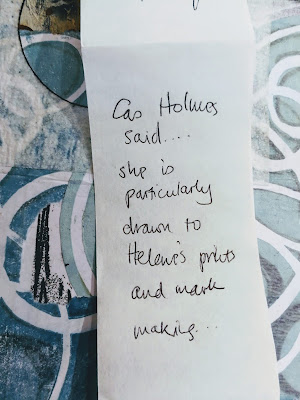 Cas Holmes
said....
she is
particularly
drawn to
Helene's prints
and mark
making...